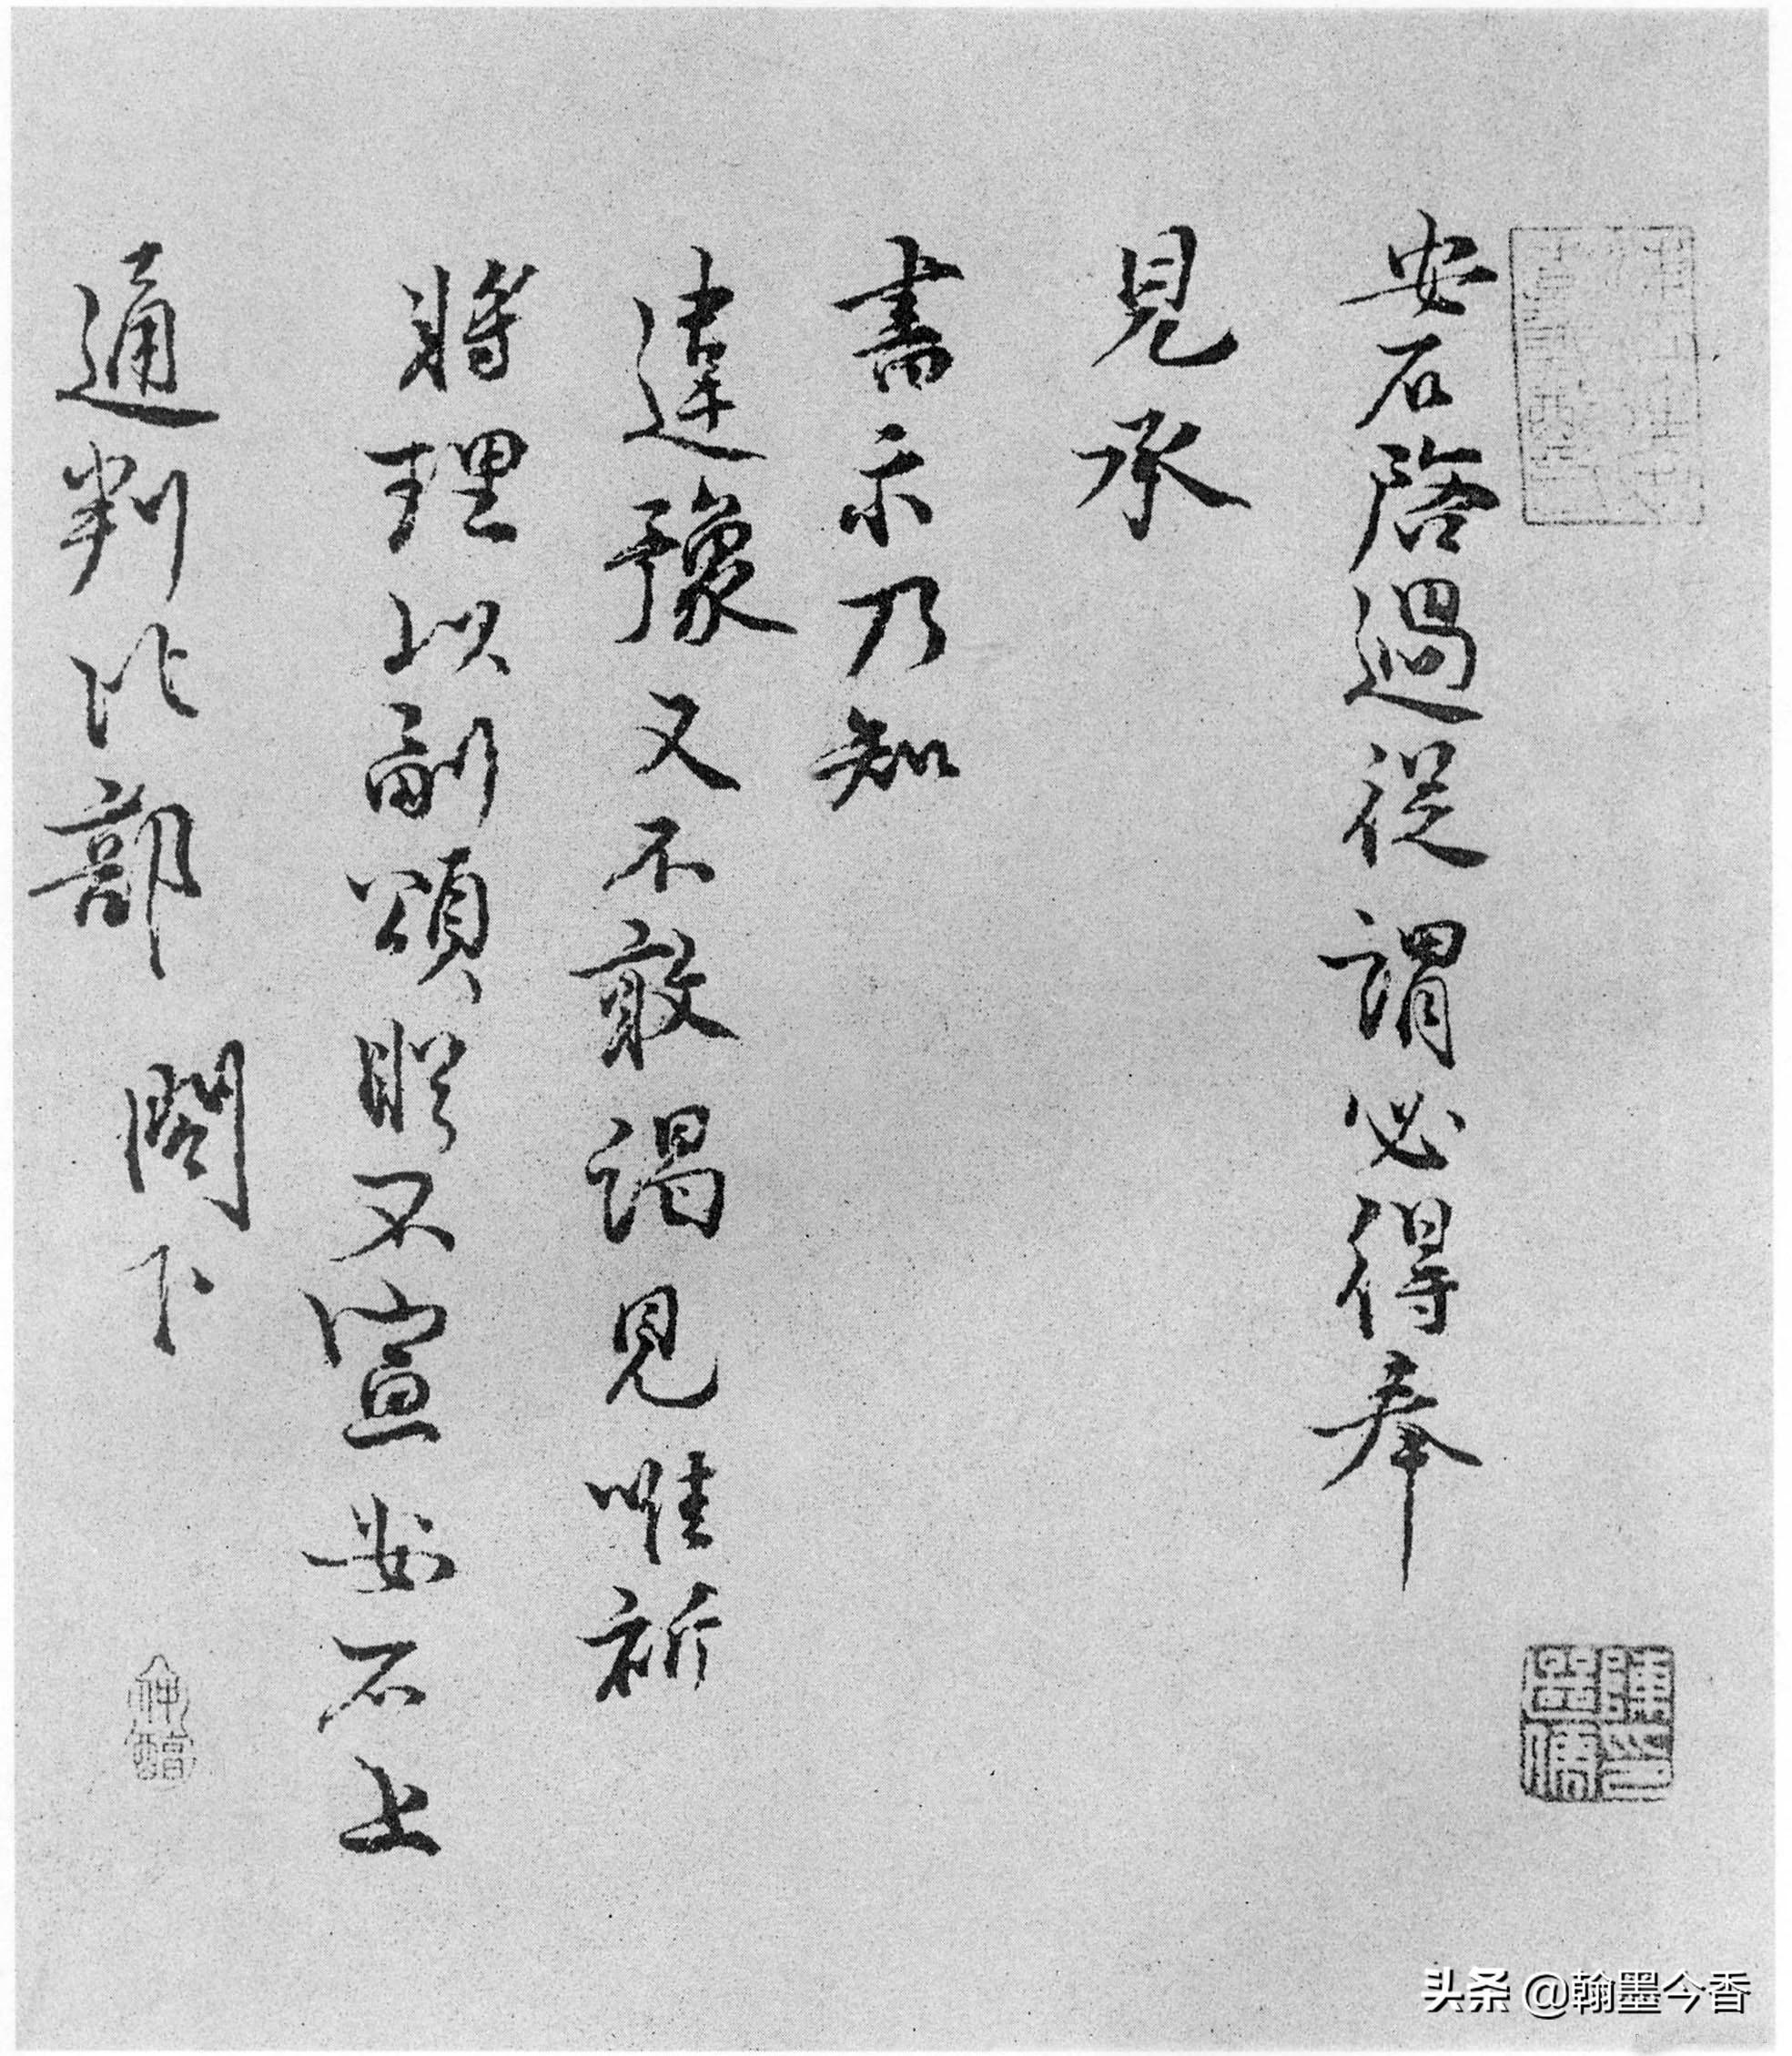 安石啓過從謂必得奉
見承
書示乃知
違豫又不敢謁見唯祈
將理以副頌不宣安石上
通判比部閤下
仲醇
头条 @翰墨今香